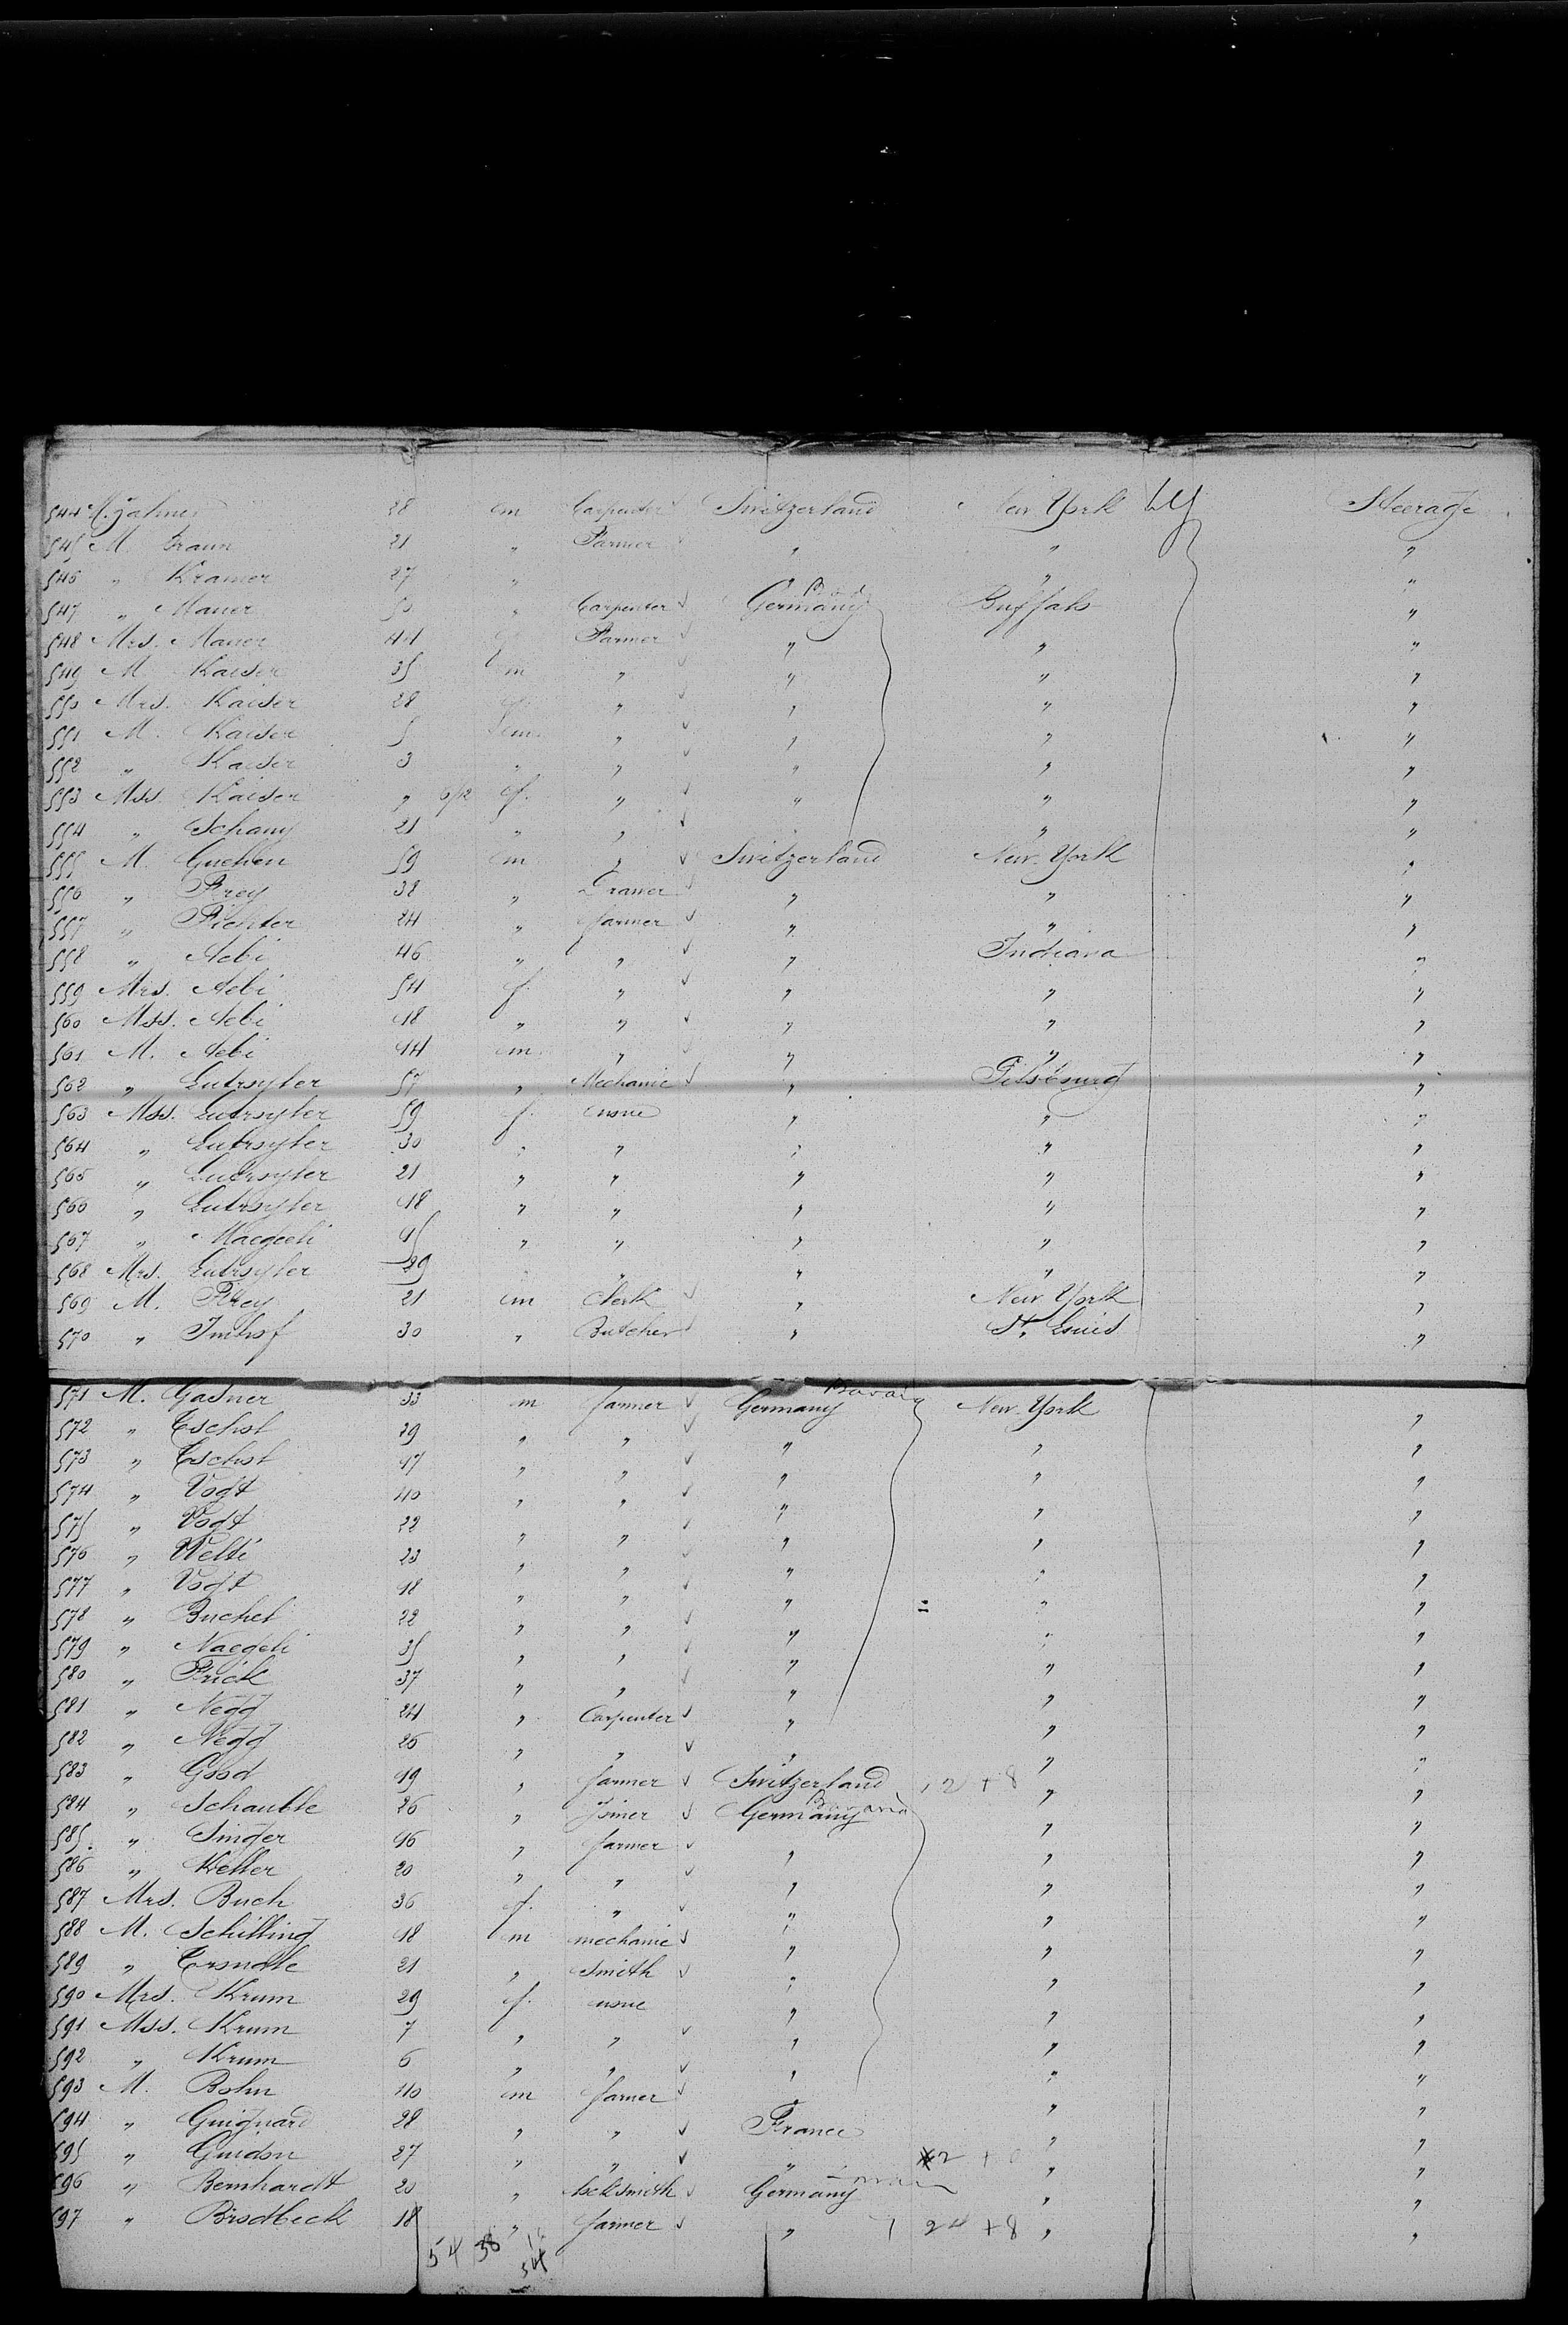 544 M. Jahner 28 m Carpenter Switzerland New York Steerage
545 M. Braun 21 " Farmer " " "
546 " Kramer 27 " " " "
547 " Maurer " Carpenter Germany Buffalo "
548 Mrs. Maurer 44 Farmer " " "
549 M. Kaiser 35 m " " " "
550 Mrs. Kaiser 28 f. " " " "
551 M. Kaiser 5 m. " " " "
552 " Kaiser 3 " " " " "
553 Mss. Kaiser " 6/12 f. " " " "
554 " Schany 21 " " " " "
555 M. Guehen 59 m " Switzerland New York "
556 " Frey 38 " " " "
557 " Fichter 24 " farmer " " "
558 " Aebi 46 " " " Indiana "
559 Mrs. Aebi 54 f. " " " "
560 Mss. Aebi 18 " " " " "
561 M. Aebi 14 m. " " " "
562 " Lutrsyler 57 " Mechanic " Pitsburg "
563 Mss. Lutrsyler 59 f. none " " "
564 " Lutrsyler 30 " " " " "
565 " Lutrsyler 21 " " " " "
566 " Lutrsyler 18 " " " " "
567 " Maegeli " " " " "
568 Mrs. Lutrsyler 29 " " " " "
569 M. Frey 21 m Clerk " New York "
570 " Imhof 30 " Butcher " St. Louis "
571 M. Gasner 33 m farmer Germany Bavaria New York "
572 " Eschol 29 " " " " "
573 " Eschol 17 " " " " "
574 " Vogt 40 " " " " "
575 " Vogt 22 " " " " "
576 " Welti 23 " " " " "
577 " Vogt 18 " " " " "
578 " Buchel 22 " " " " "
579 " Naegeli 35 " " " " "
580 " Frick 37 " " " " "
581 " Negg 24 " Carpenter " " "
582 " Negg 26 " " " " "
583 " Good 19 " farmer Switzerland 2 + 8 " "
584 " Schauble 26 " Joiner Germany Bavaria " "
585 " Singer 16 " farmer " " "
586 " Keller 20 " " " " "
587 Mrs. Buch 36 f. " " " "
588 M. Schilling 18 m mechanic " " "
589 " 21 " Smith " " "
590 Mrs. Krum 29 f. none " " "
591 Mss. Krum 7 " " " " "
592 " Krum 6 " " " " "
593 M. Bohn 40 m farmer " " "
594 " Guignard 28 " " France " "
595 " Guidon 27 " " " 2 + " "
596 " Bernhardt 20 " locksmith Germany " "
597 " Brodbeck 18 " farmer " 24 + 8 " "
54 38
54